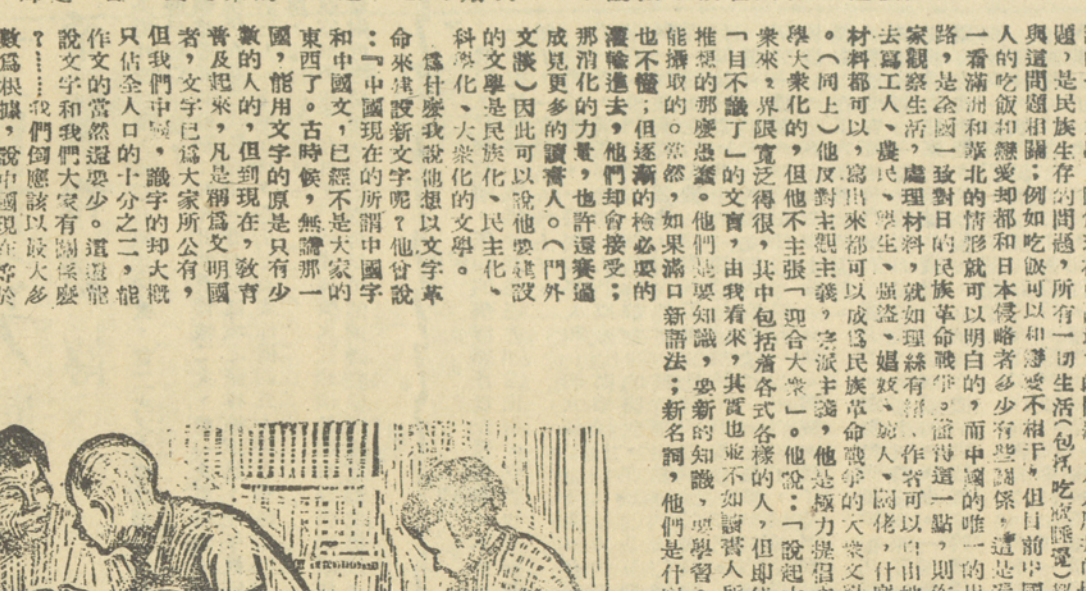 題，是民族生存的問題，所有一切生活（包括吃飯睡覺）
與這問題相關；例如吃飯可以和戀愛不相干，但目前中國
人的吃飯和戀愛却都和日本侵略者多少有些關係，這是
一看滿洲和華北的情形就可以明白的，而中國的唯一的出
路，是全國一致對日的民族革命戰爭。懂得這一點，則
家觀察生活，處理材料，就如理絲有緒，作者可以自由地
去寫工人、農民、學生、强盜、娼妓、窮人、闊佬，什麼
材料都可以，寫出來都可以成爲民族革命戰爭的大衆文
。（同上）他反對主觀主義，宗派主義，他是極力提倡
學大衆化的，但他不主張「迎合大衆」。他說：「說起
衆來，界限寬泛得很，其中包括着各式各樣的人，但即
「目不識了」的文盲，由我看來，其實也並不如讀書人所
推想的那麼愚蠢。他們是要知識，要新的知識，要學習
能攝取的。當然，如果滿口新語法；新名詞，他們是什
也不懂；但逐漸的檢必要的
灌輸進去，他們却會接受；
那消化的力量，也許還賽過
成見更多的讀書人。（門外
文談）因此可以說他要建設
的文學是民族化、民主化、
科學化、大衆化的文學。
爲什麼我說他想以文字革
命來建設新文字呢？他曾說
：『中國現在的所謂中國字
和中國文，已經不是大家的
東西了。古時候，無論那一
國，能用文字的原是只有少
數的人的，但到現在，敎育
普及起來，凡是稱爲文明國
者，文字已爲大家所公有，
但我們中國，識字的却大概
只佔全人口的十分之二，能
作文的當然還要少。這還能
說文字和我們大家有關係麼
？……我們倒應該以最大多
數爲根據，說中國現在等於